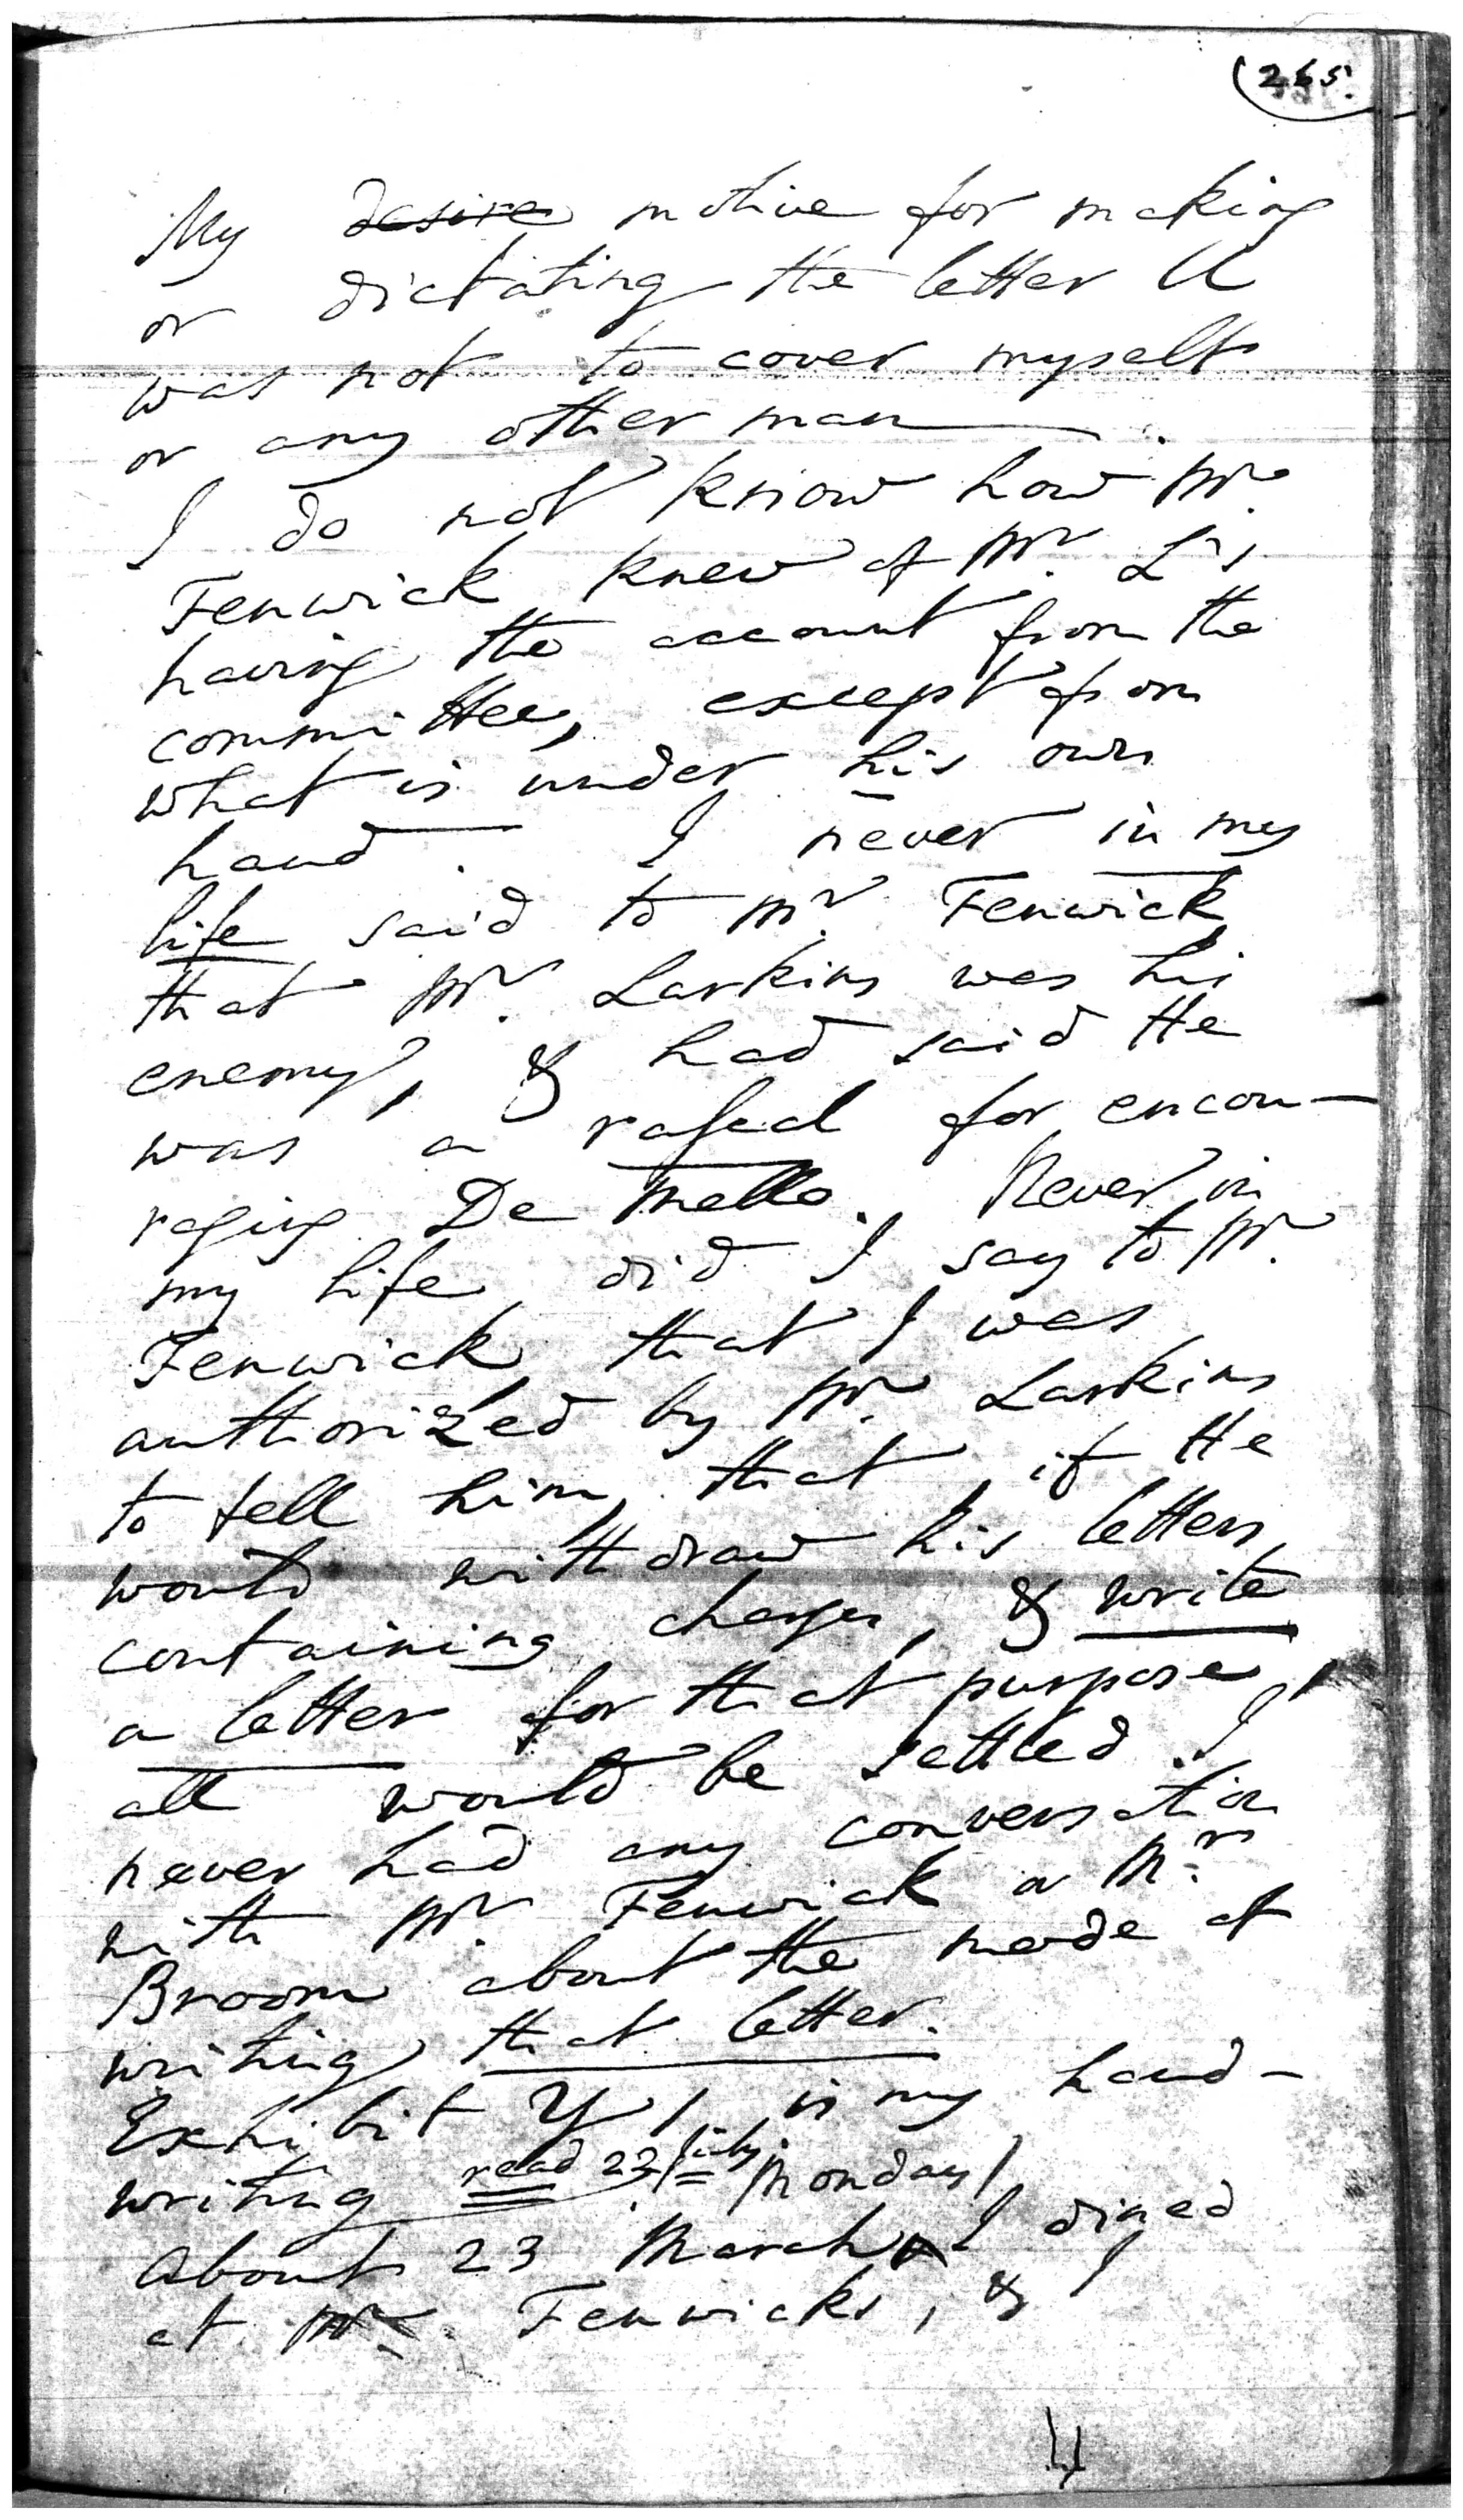 (265.
My desire motive for making
or dictating the letter U
was not to cover myself
or any other man.
I do not know how Mr.
Fenwick knew of Mr. L's
having the account from the
committee, except from
what is under his own
hand. I never in my
life said to Mr. Fenwick
that Mr. Larkins was his
enemy, & had said He
was a rascal for encou-
raging De Mello. Never in
my life did I say to Mr.
Fenwick that I was
authorized by Mr. Larkins
to tell him, that, if He
would withdraw his letters
containing charges, & write
a letter for that purpose,
all would be settled. I
never had any conversation
with Mr. Fenwick or Mr.
Broom about the mode of
writing that letter.
Exhibit Y, is my hand-
writing read 23 Monday
About 23 March I dined
at Mr. Fenwicks, & I